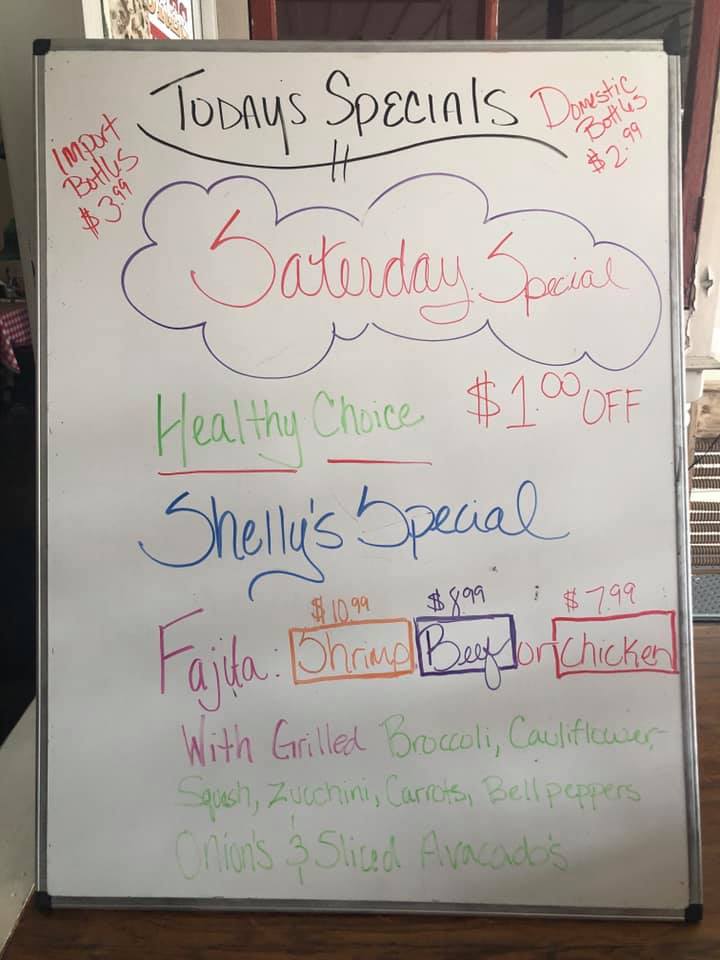 TODAYS SPECIALS
Import
Bottles
$3.99
Domestic
Bottles
$2.99
Saterday Special
Healthy Choice $1.00 OFF
Shelly's Special
$10.99 $8.99 $7.99
Fajita: Shrimp, Beef or Chicken
With Grilled Broccoli, Cauliflower
Squash, Zucchini, Carrots, Bell peppers
Onion's & Sliced Avacado's